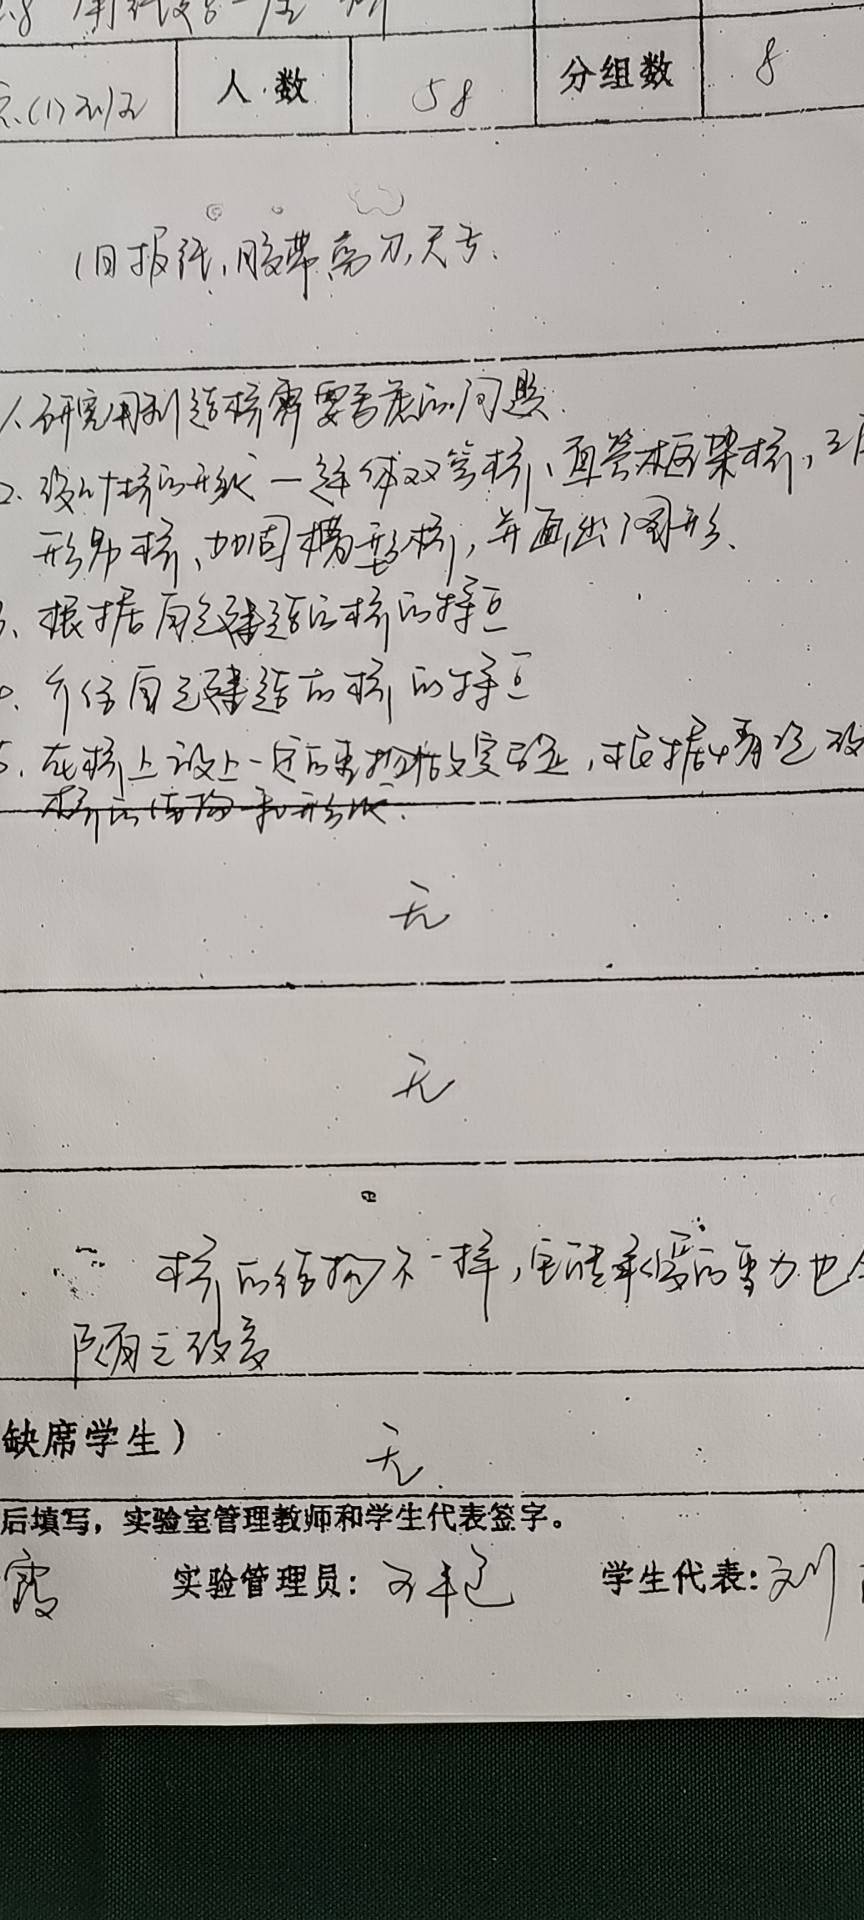 人数 58 分组数 8
旧报纸,胶带剪刀,天亏.
1.研究用到造桥需要考虑的问题.
2.设计桥的形状一连体双管桥、直管框架桥,
形 桥、加固槽型桥,并画出图形、
、根据自己建造的桥的特点
、介绍自己建造的桥的特点
5.在桥上设上一定的重物做实验,根据情况改
桥的结构和形状.
无
无
桥的结构不一样,它能承受的重力也会
随之改变
缺席学生) 无.
后填写,实验室管理教师和学生代表签字。
霞 实验管理员: 学生代表:刘